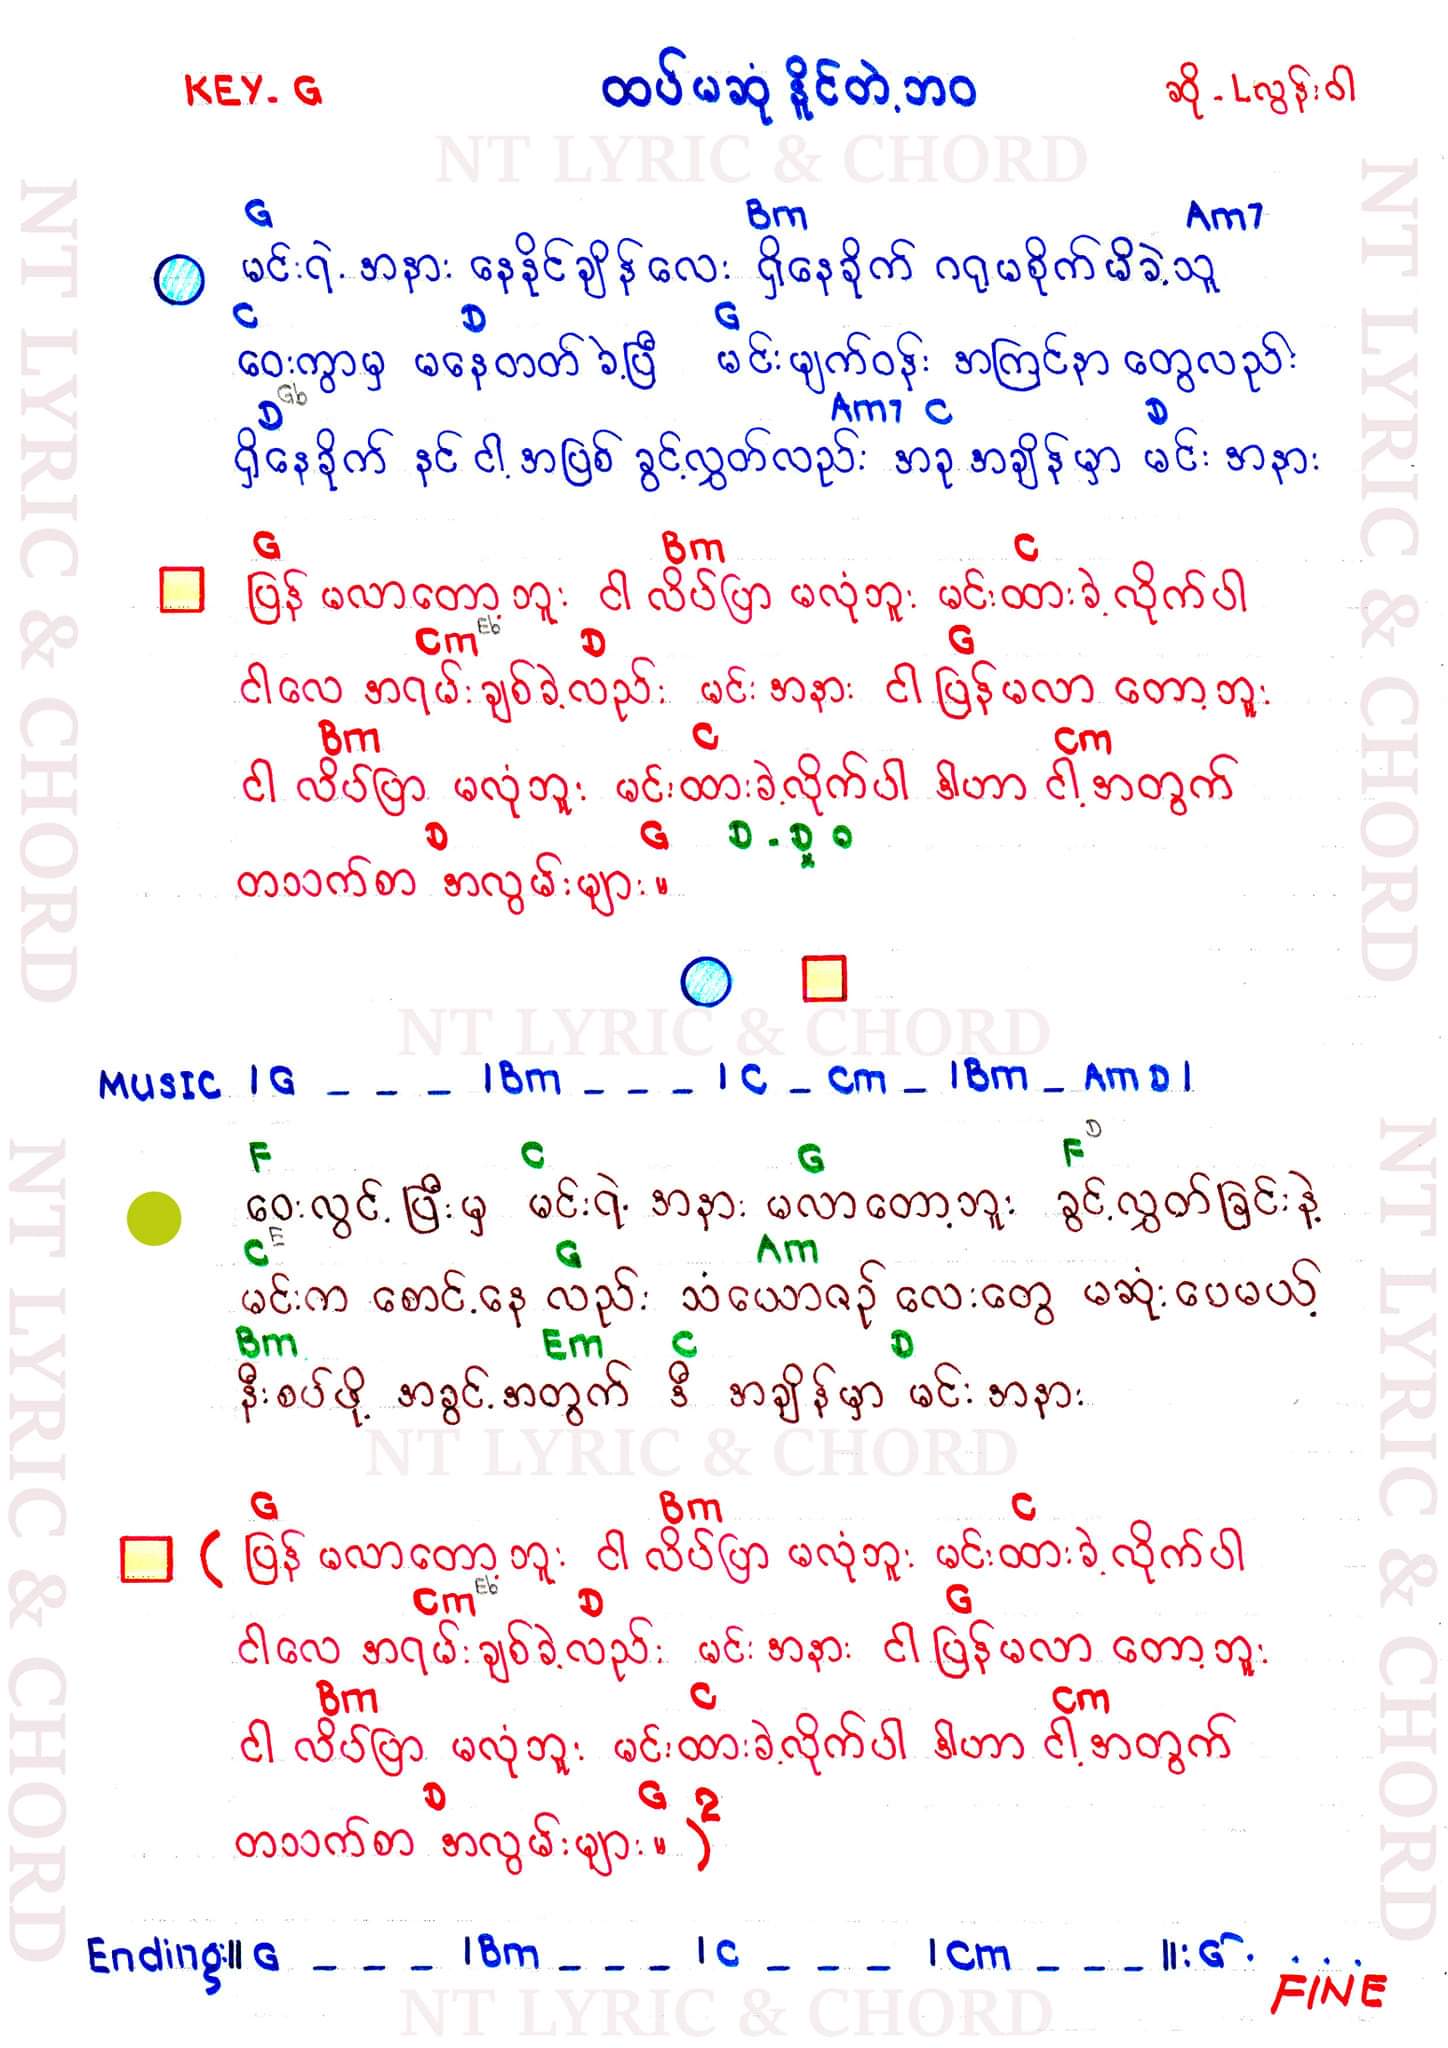 KEY. G
ထပ်မဆုံနိူင်တဲ့ဘဝ
ဆို - Lလွန်းဝါ
NT LYRIC & CHORD
G Bm Am7
မင်းရဲ့ အနား နေနိုင်ချိန်လေး ရှိနေခိုက် ဂရုမစိုက်မိခဲ့သူ
C D G
ဝေးကွာမှ မနေတတ်ခဲ့ပြီ မင်းမျက်ဝန်း အကြင်နာ တွေလည်း
D Gb Am7 C D
ရှိနေခိုက် နင် ငါ့အပြစ် ခွင့်လွှတ်လည်း အခု အချိန်မှာ မင်း အနား
G Bm C
ပြန် မလာတော့ဘူး ငါ လိပ်ပြာ မလုံဘူး မင်းထားခဲ့လိုက်ပါ
Cm Eb D G
ငါလေ အရမ်းချစ်ခဲ့လည်း မင်း အနား ငါ ပြန်မလာ တော့ဘူး
Bm C Cm
ငါ လိပ်ပြာ မလုံဘူး မင်းထားခဲ့လိုက်ပါ ဒါဟာ ငါ့အတွက်
D G D - D
တသက်စာ အလွမ်းများ။
NT LYRIC & CHORD
MUSIC | G _ _ _ | Bm _ _ _ | C _ Cm _ | Bm _ Am D |
F C G F D
ဝေးလွင့်ပြီးမှ မင်းရဲ့ အနား မလာတော့ဘူး ခွင့်လွှတ်ခြင်းနဲ့
C E G Am
မင်းက စောင့်နေ လည်း သံယောဇဉ် လေးတွေ မဆုံးပေမယ့်
Bm Em C D
နီးစပ်ဖို့ အခွင့်အတွက် ဒီ အချိန်မှာ မင်း အနား
NT LYRIC & CHORD
G Bm C
( ပြန် မလာတော့ဘူး ငါ လိပ်ပြာ မလုံဘူး မင်းထားခဲ့လိုက်ပါ
Cm Eb D G
ငါလေ အရမ်းချစ်ခဲ့လည်း မင်း အနား ငါ ပြန်မလာ တော့ဘူး
Bm C Cm
ငါ လိပ်ပြာ မလုံဘူး မင်းထားခဲ့လိုက်ပါ ဒါဟာ ငါ့အတွက်
D G
တသက်စာ အလွမ်းများ။ )2
Ending: || G _ _ _ | Bm _ _ _ | C _ _ _ | Cm _ _ _ ||: G . . . .
FINE
NT LYRIC & CHORD
NT LYRIC & CHORD
NT LYRIC & CHORD
NT LYRIC & CHORD
NT LYRIC & CHORD